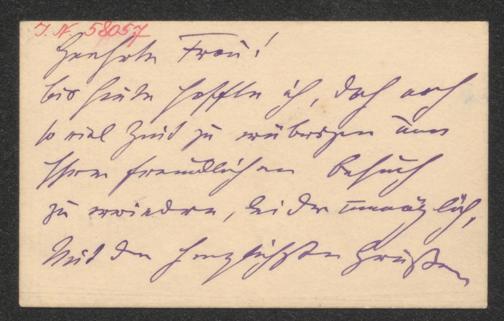 J. N. 58057
Geehrte Frau!
bis heute hoffte ich, doch noch
so viel Zeit zu erübrigen um
Ihren freundlichen Besuch
zu erwiedern, leider unmöglich,
Mit den herzlichsten Grüßen